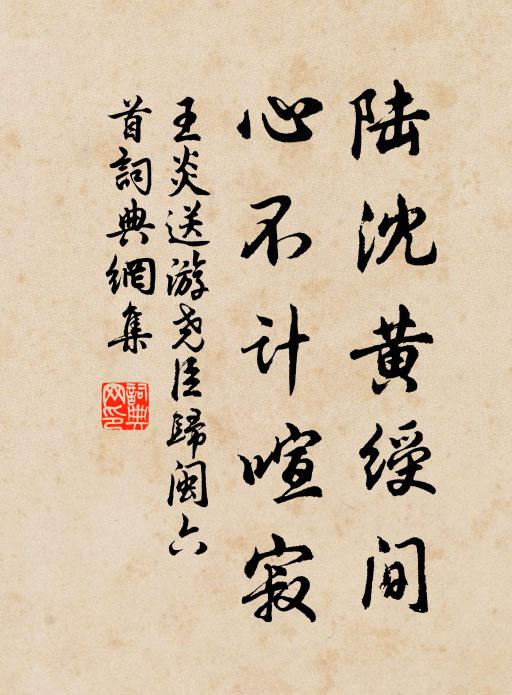 陆沈黄绶间
心不计喧寂
王炎送游尧臣归闽六
首词典網集
詞典
网印